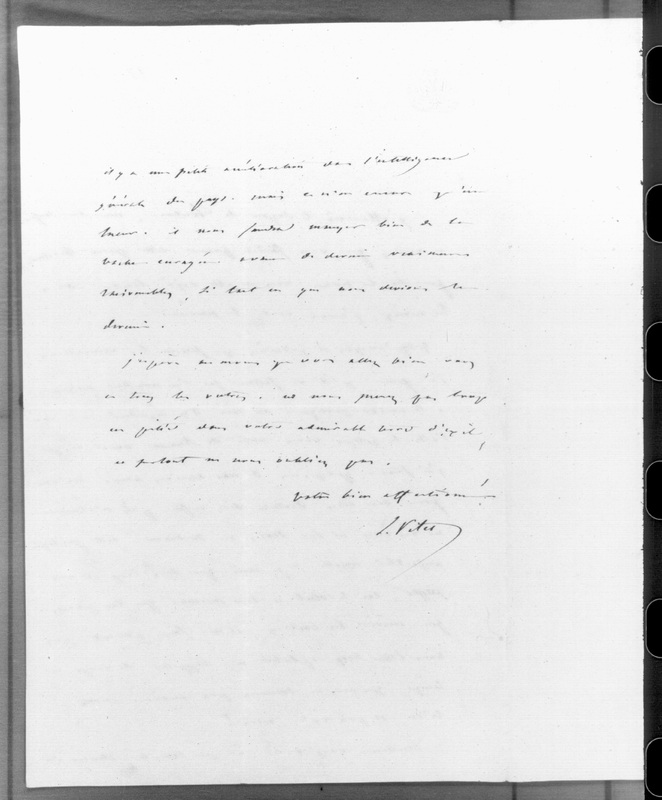 il y a une petite amélioration dans l'intelligence
générale du pays. mais ce n'est encore qu'une
lueur. il nous faudra manger bien de la
vache enragée avant de devenir vraiment
raisonnables, si tant est que nous devions le
devenir.
j'espère au moins que vous allez bien, vous
et tous les vôtres. ne nous prenez pas trop
en pitié dans votre admirable lieu d'exil,
et surtout ne nous oubliez pas.
votre bien affectionné.
L. Vitet